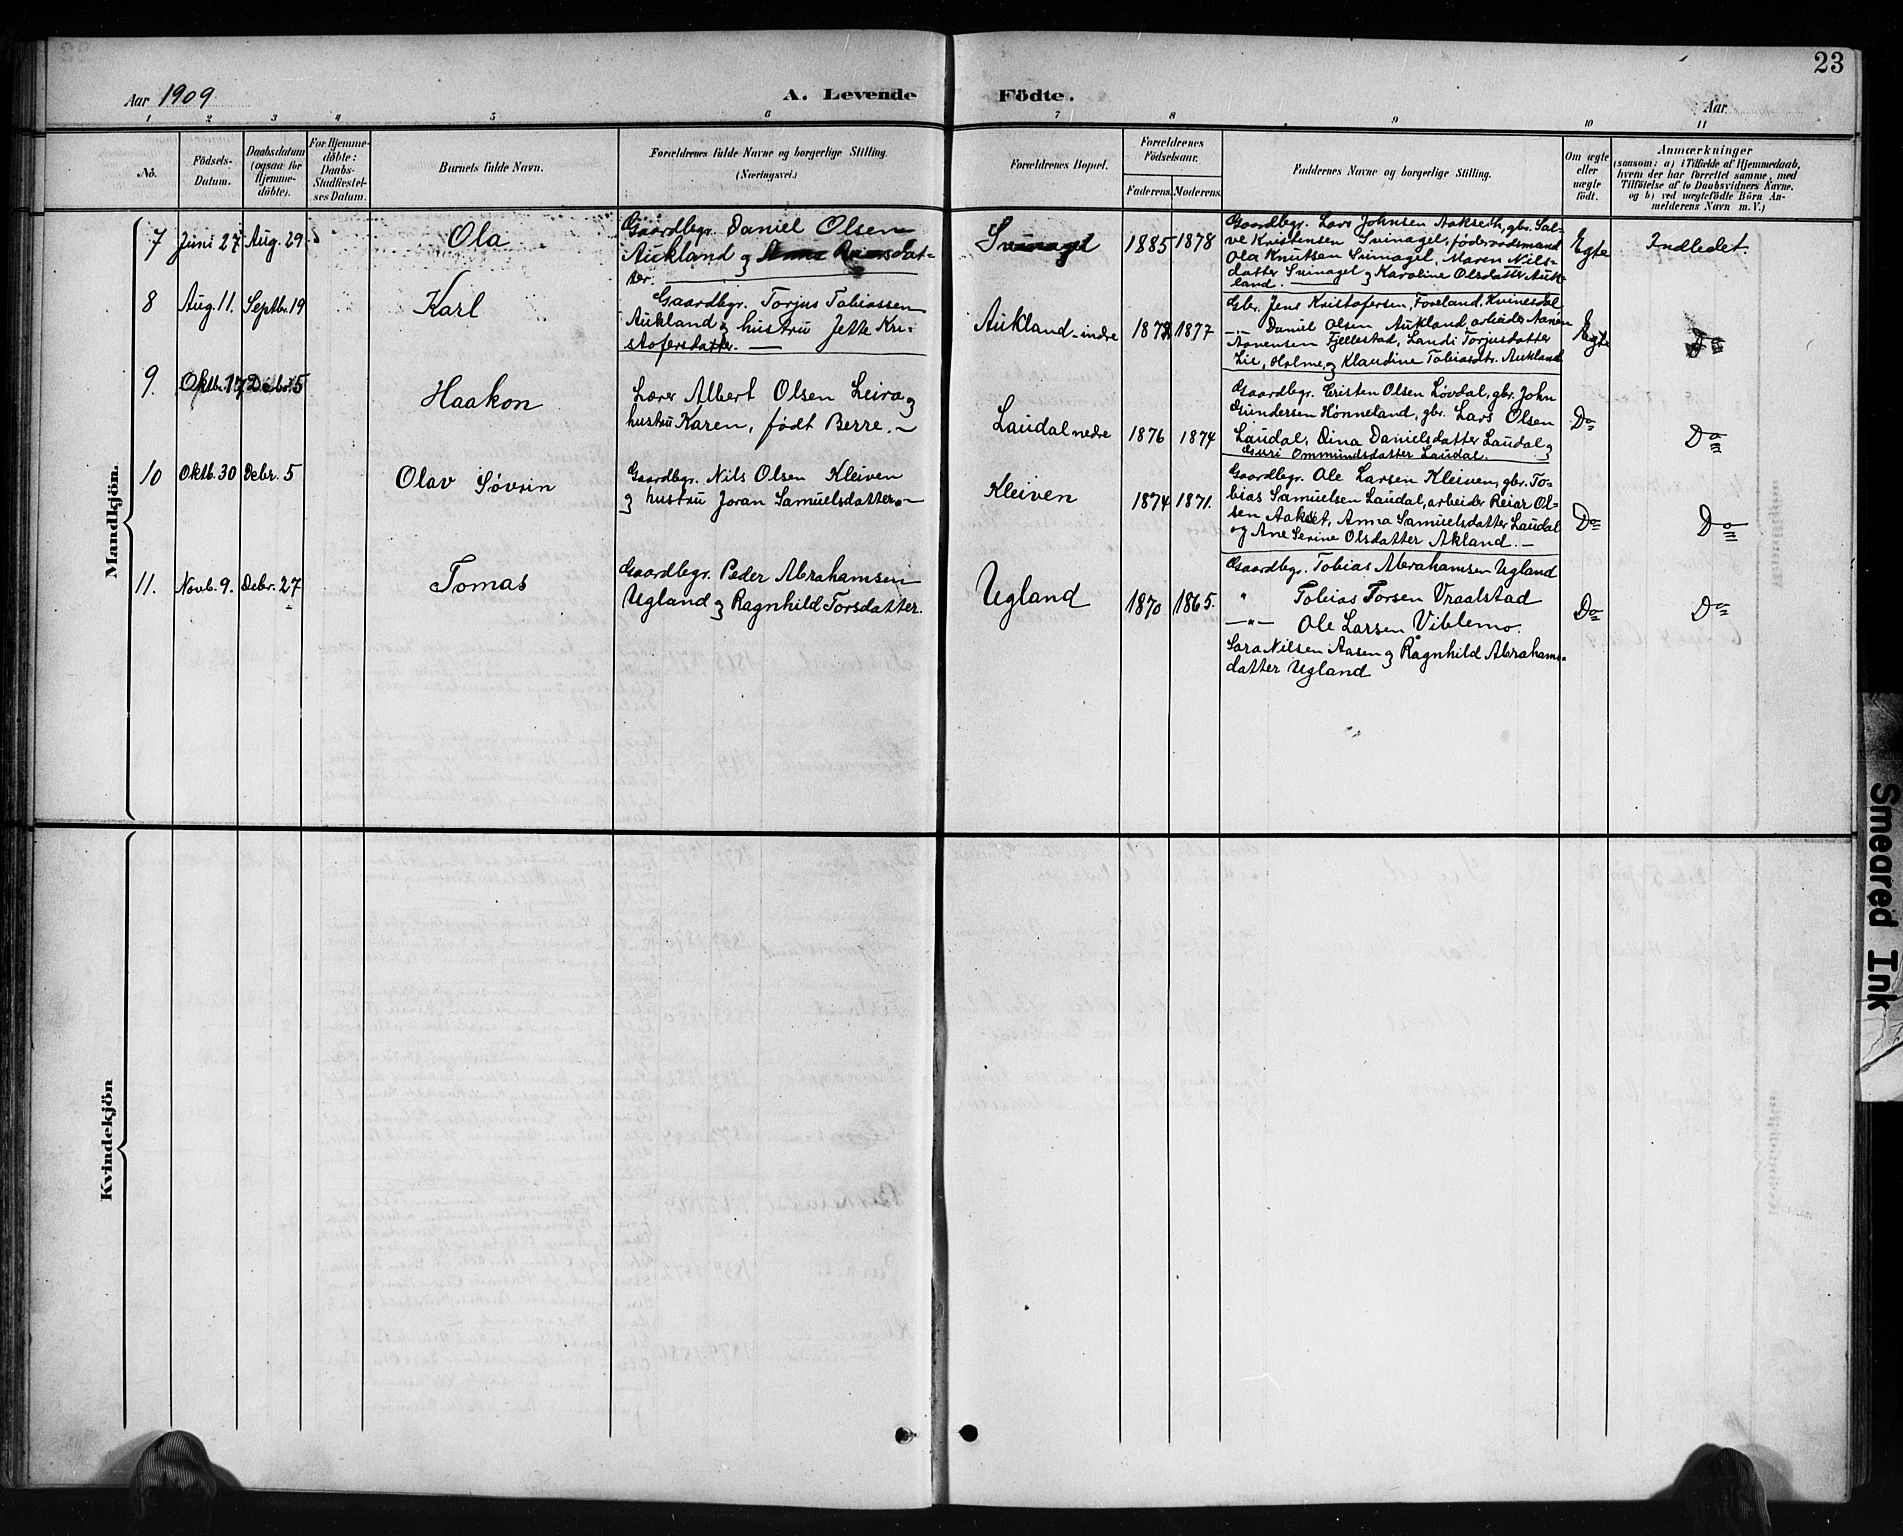 23
Aar 1909
A. Levende Födte.
Aar
1 2 3 4 5 6 7 8 9 10 11
No.
Födsels-
Datum.
Daabsdatum
(ogsaa for
Hjemme-
döbte).
For Hjemme-
döbte:
Daabs-
Stadfæstel-
ses Datum.
Barnets fulde Navn.
Forældrenes fulde Navne og borgerlige Stilling.
(Næringsvei.)
Forældrenes Bopæl.
Forældrenes
Födselsaar.
Faderens. Moderens.
Faddernes Navne og borgerlige Stilling.
Om ægte
eller
uægte
født.
Anmærkninger
(saasom: a) i Tilfælde af Hjemmedaab,
hvem der har forrettet samme, med
Tilföielse af to Daabsvidners Navne.
og b) ved uægtefödte Börn An-
melderens Navn m. V.)
Mandkjön.
7 Juni 27 Aug. 29
Ola
Gaardbgr. Daniel Olsen
Aukland og
ter.
Svinagel
1885 1878
Gaardbgr. Lars Johnsen Aakseth, gbr. Sal-
ve Kristensen Svinagel, føderaadsmand
Ola Knutsen Svinagel, Maren Nils-
datter Svinagel og Karoline Olsdatter Auk-
land.
Egte
Indledet.
8 Aug. 11. Septbr. 19
Karl
Gaardbgr. Torjus Tobiassen
Aukland og hustru Jette Kri-
stofersdatter.
Aukland-indre
1877
Gbr. Jens Kristofersen, Foreland, Kvinesdal,
-"- Daniel Olsen Aukland, arbeider Aanen
Aanensen Fjellestad, Landi Torjusdatter
Lie, Holme, og Klaudine Tobiasdtr. Aukland
Egte
Do
9. Oktb. 17 Debr. 5
Haakon
Lærer Albert Olsen Leira og
hustru Karen, født Berre.
Laudal nedre
1876 1874
Gaardbgr. Cristen Olsen Løvdal, gbr. John
Gundersen Hønneland, gbr. Lars Olsen
Laudal, Dina Danielsdatter Laudal og
Guri Ommundsdatter Laudal.
Do
Do
10 Oktb. 30 Debr. 5
Olav Søvrin
Gaardbgr. Nils Olsen Kleiven
og hustru Joran Samuelsdatter.
Kleiven
1874 1871.
Gaardbgr. Ole Larsen Kleiven, gbr. To-
bias Samuelsen Laudal, arbeider Reiar Ol-
sen Aakset, Anna Samuelsdatter Laudal
og Ane Serine Olsdatter Akland.
Do
Do
11. Novb. 9. Debr. 27
Tomas
Gaardbgr. Peder Abrahamsen
Ugland og Ragnhild Torsdatter.
Ugland
1870 1865.
Gaardbgr. Tobias Abrahamsen Ugland
" Tobias Torsen Vraalstad
-"- Ole Larsen Viblemo.
Sara Nilsen Aasen og Ragnhild Abrahams-
datter Ugland
Do
Do
Kvindekjön
Smeared Ink